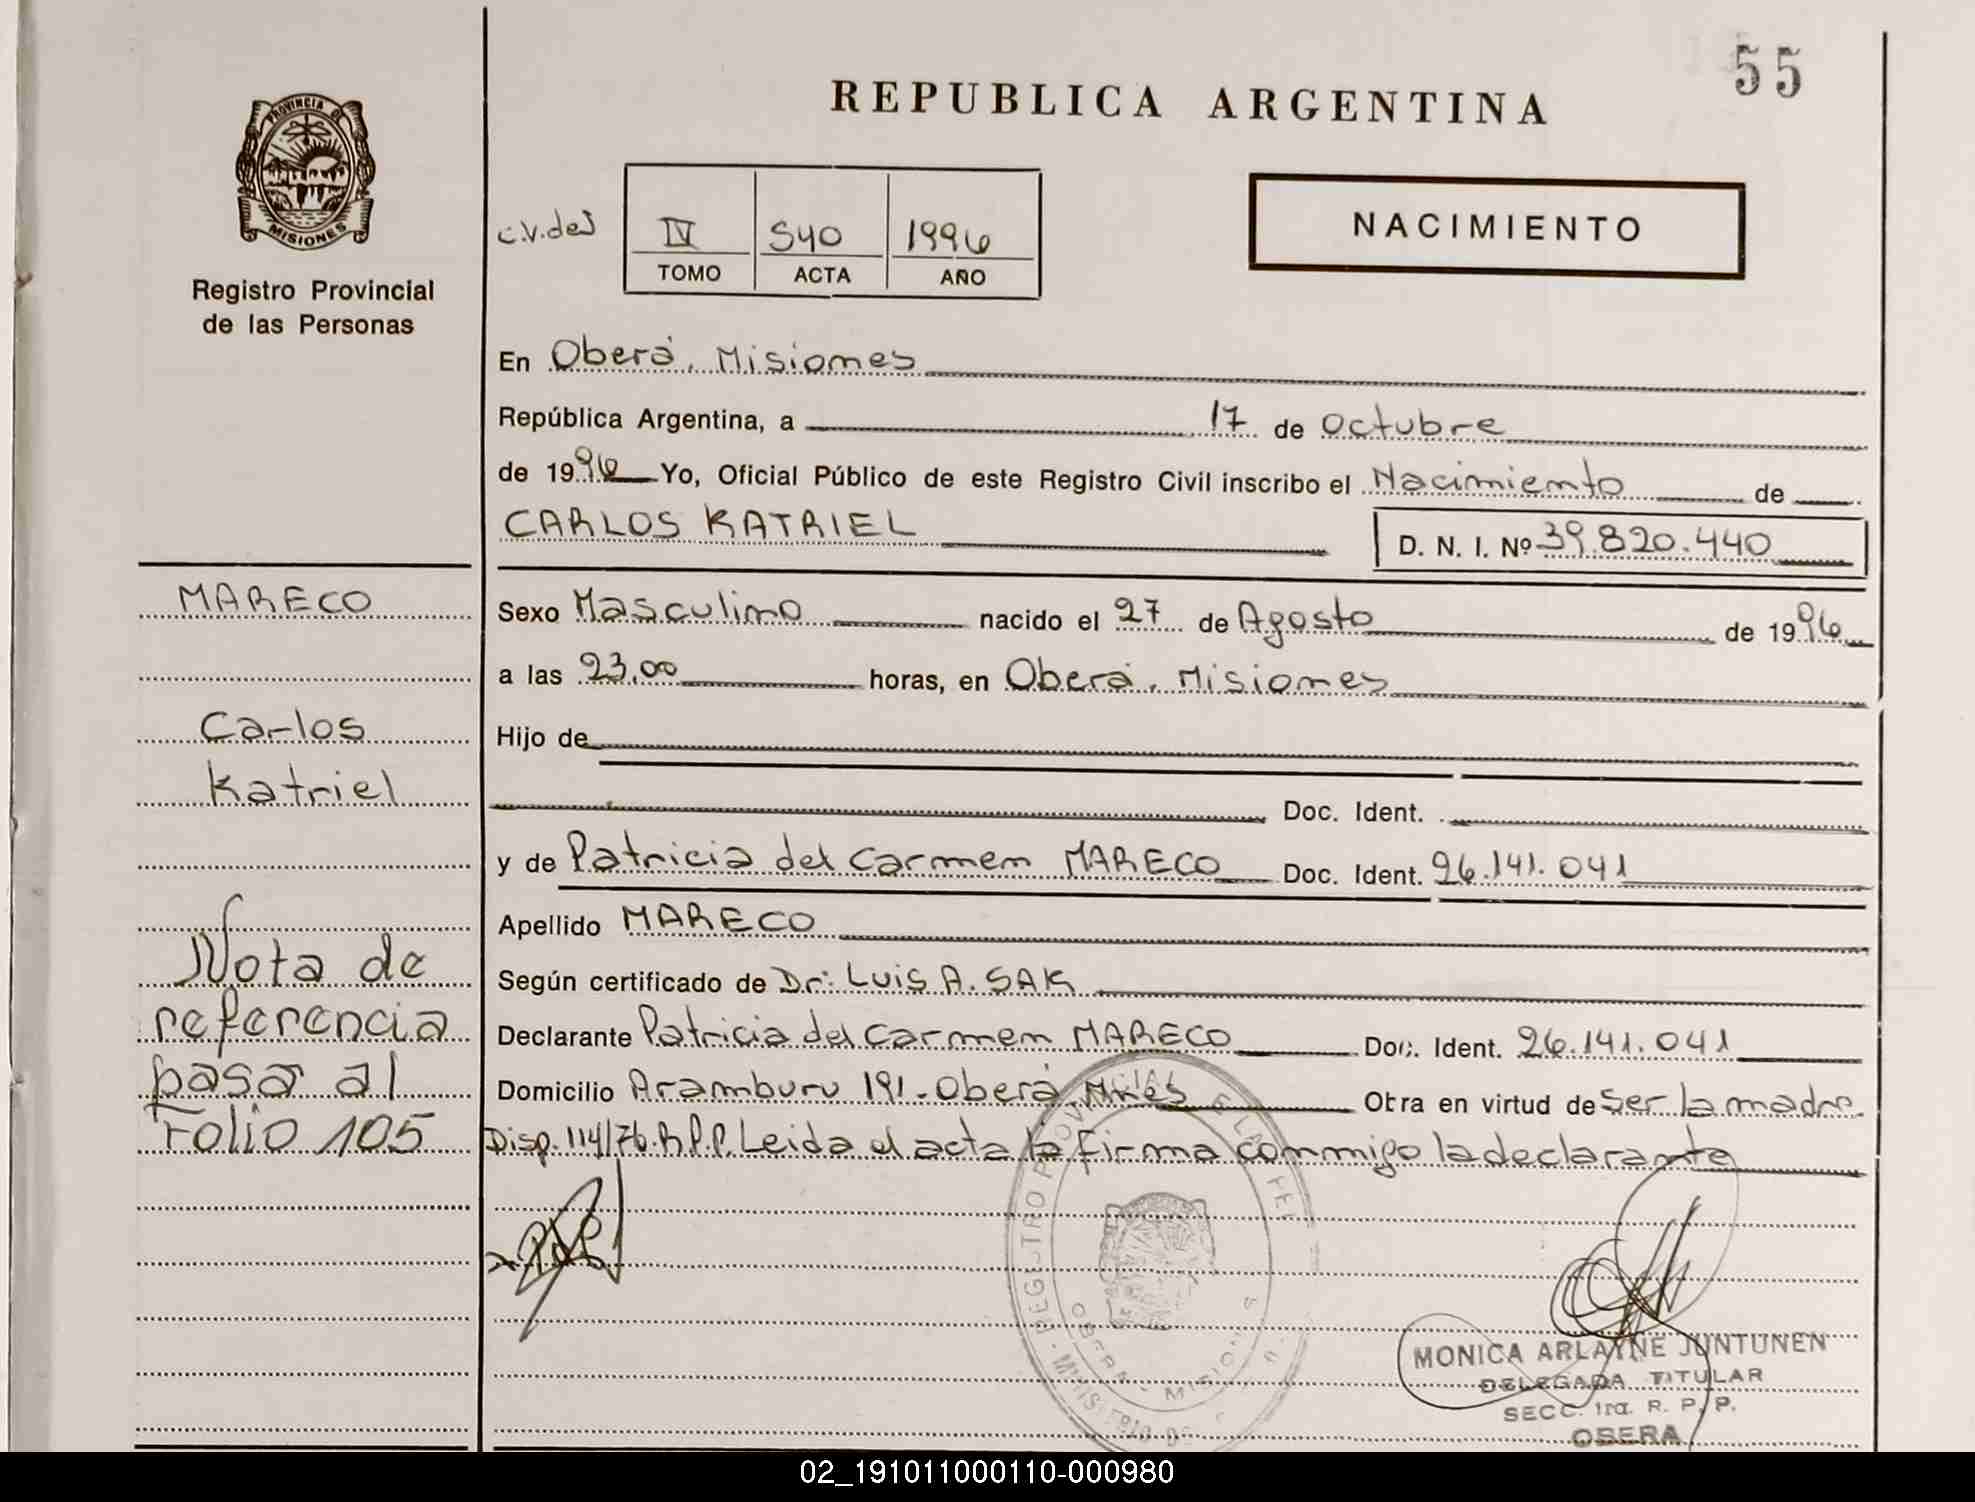 55
REPUBLICA ARGENTINA
PROVINCIA DE
MISIONES
Registro Provincial
de las Personas
c.v.des
IV 540 1996
TOMO ACTA AÑO
NACIMIENTO
En Oberá, Misiones
República Argentina, a 17 de Octubre
de 1996 Yo, Oficial Público de este Registro Civil inscribo el Nacimiento de
CARLOS KATRIEL D. N. I. Nº 39.820.440
MARECO
Carlos
Katriel
Nota de
referencia
pasa al
Folio 105
Sexo Masculino nacido el 27 de Agosto de 1996
a las 23,00 horas, en Oberá, Misiones
Hijo de
Doc. Ident.
y de Patricia del Carmen MARECO Doc. Ident. 26.141.041
Apellido MARECO
Según certificado de Dr: Luis A. SAK
Declarante Patricia del Carmen MARECO Doc. Ident. 26.141.041
Domicilio Aramburu 191 - Oberá, Mnes Obra en virtud de ser la madre.
Disp. 114/76. R.P.P. Leida el acta la firma conmigo la declarante
REGISTRO PROVINCIAL DE LAS PER
OBERA - MISIONES
MINISTERIO DE
MONICA ARLAYNE JUNTUNEN
DELEGADA TITULAR
SECC. 1ra. R. P. P.
OBERA
02_191011000110-000980